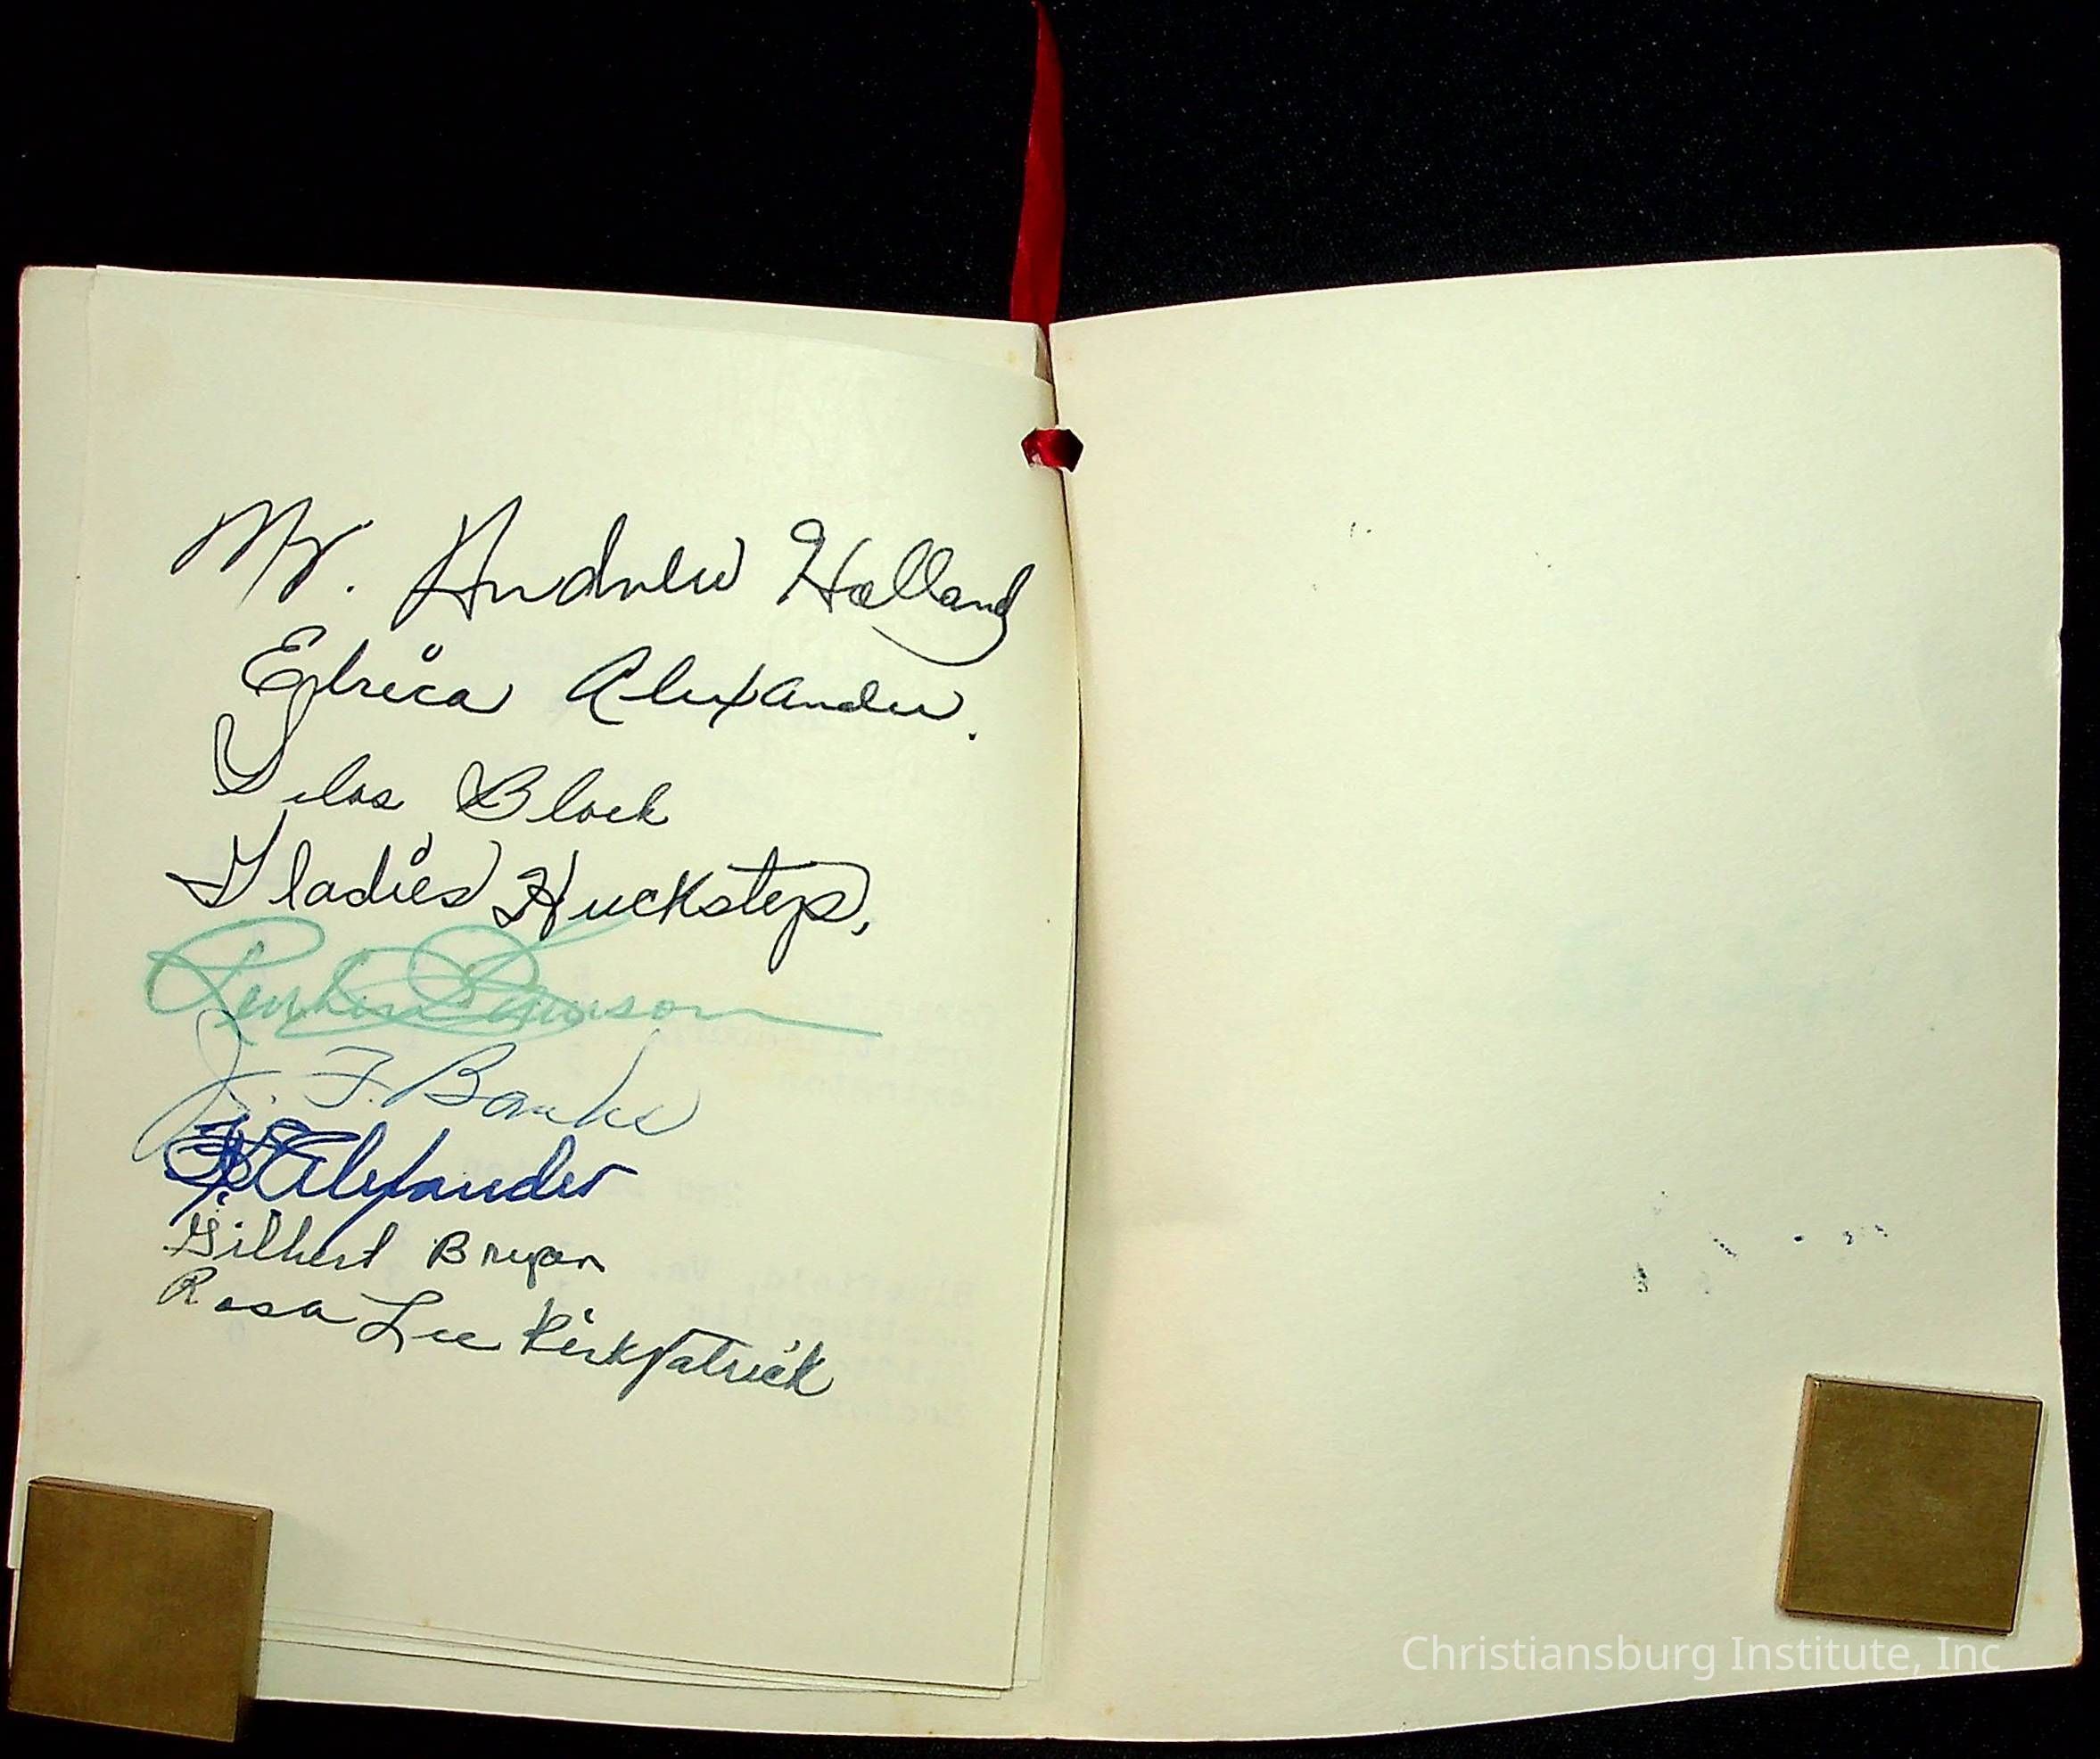 Mr. Andrew Holland
Edrica Alexander.
Silas Black
Gladies Huckstep,
J. F. Banks
Alexander
Gilbert Bryan
Rosa Lee Kirkpatrick
Christiansburg Institute, Inc